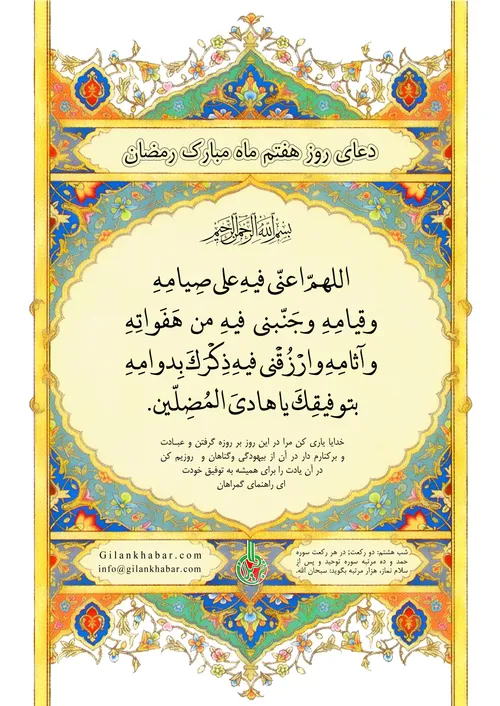 دعای روز هفتم ماه مبارک رمضان
بِسْمِ اللهِ الرَّحْمٰنِ الرَّحِيمِ
اللهمّ اعنّی فیهِ علی صِیامِهِ
و قیامِهِ و جَنّبنی فیهِ من هَفَواتِهِ
و آثامِهِ وارْزُقْنی فیهِ ذِکْرَكَ بِدوامِهِ
بتوفیقِكَ یا هادیَ المُضِلّین.
خدایا یاری کن مرا در این روز بر روزه گرفتن و عبادت
و برکنارم دار در آن از بیهودگی وگناهان و روزیم کن
در آن یادت را برای همیشه به توفیق خودت
ای راهنمای گمراهان
Gilankhabar.com
info@gilankhabar.com
شب هشتم: دو رکعت؛ در هر رکعت سوره
حمد و ده مرتبه سوره توحید و پس از
سلام نماز، هزار مرتبه بگوید: سبحان الله.